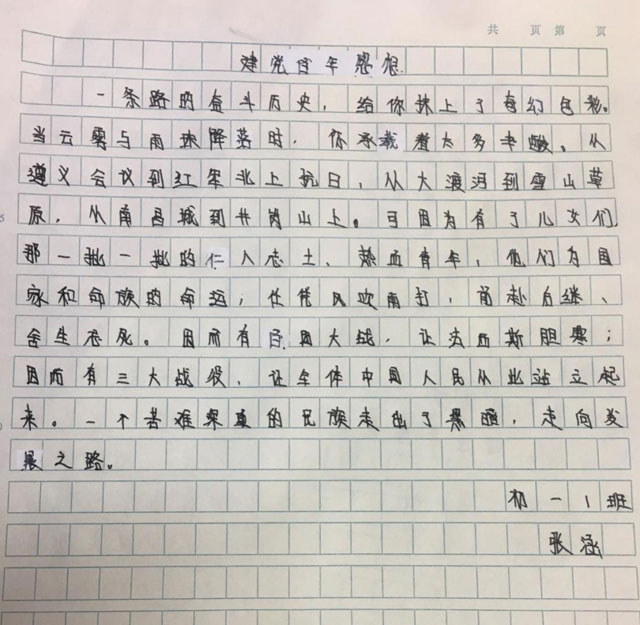 共 页 第 页
建党百年感想
一条路的奋斗历史，给你抹上了奇幻色彩。
当云雾与雨珠降落时，你承载着太多辛酸。从
遵义会议到红军北上抗日，从大渡河到雪山草
原，从南昌城到井岗山上。可因为有了儿女们
那一批一批的仁人志士、热血青年，他们为国
家和命族的命运；任凭风吹雨打，前赴后继、
舍生忘死。因而有百团大战，让法西斯胆寒；
因而有三大战役，让全体中国人民从此站立起
来。一个苦难深重的民族走出了黑暗，走向发
展之路。
初一1班
张涵